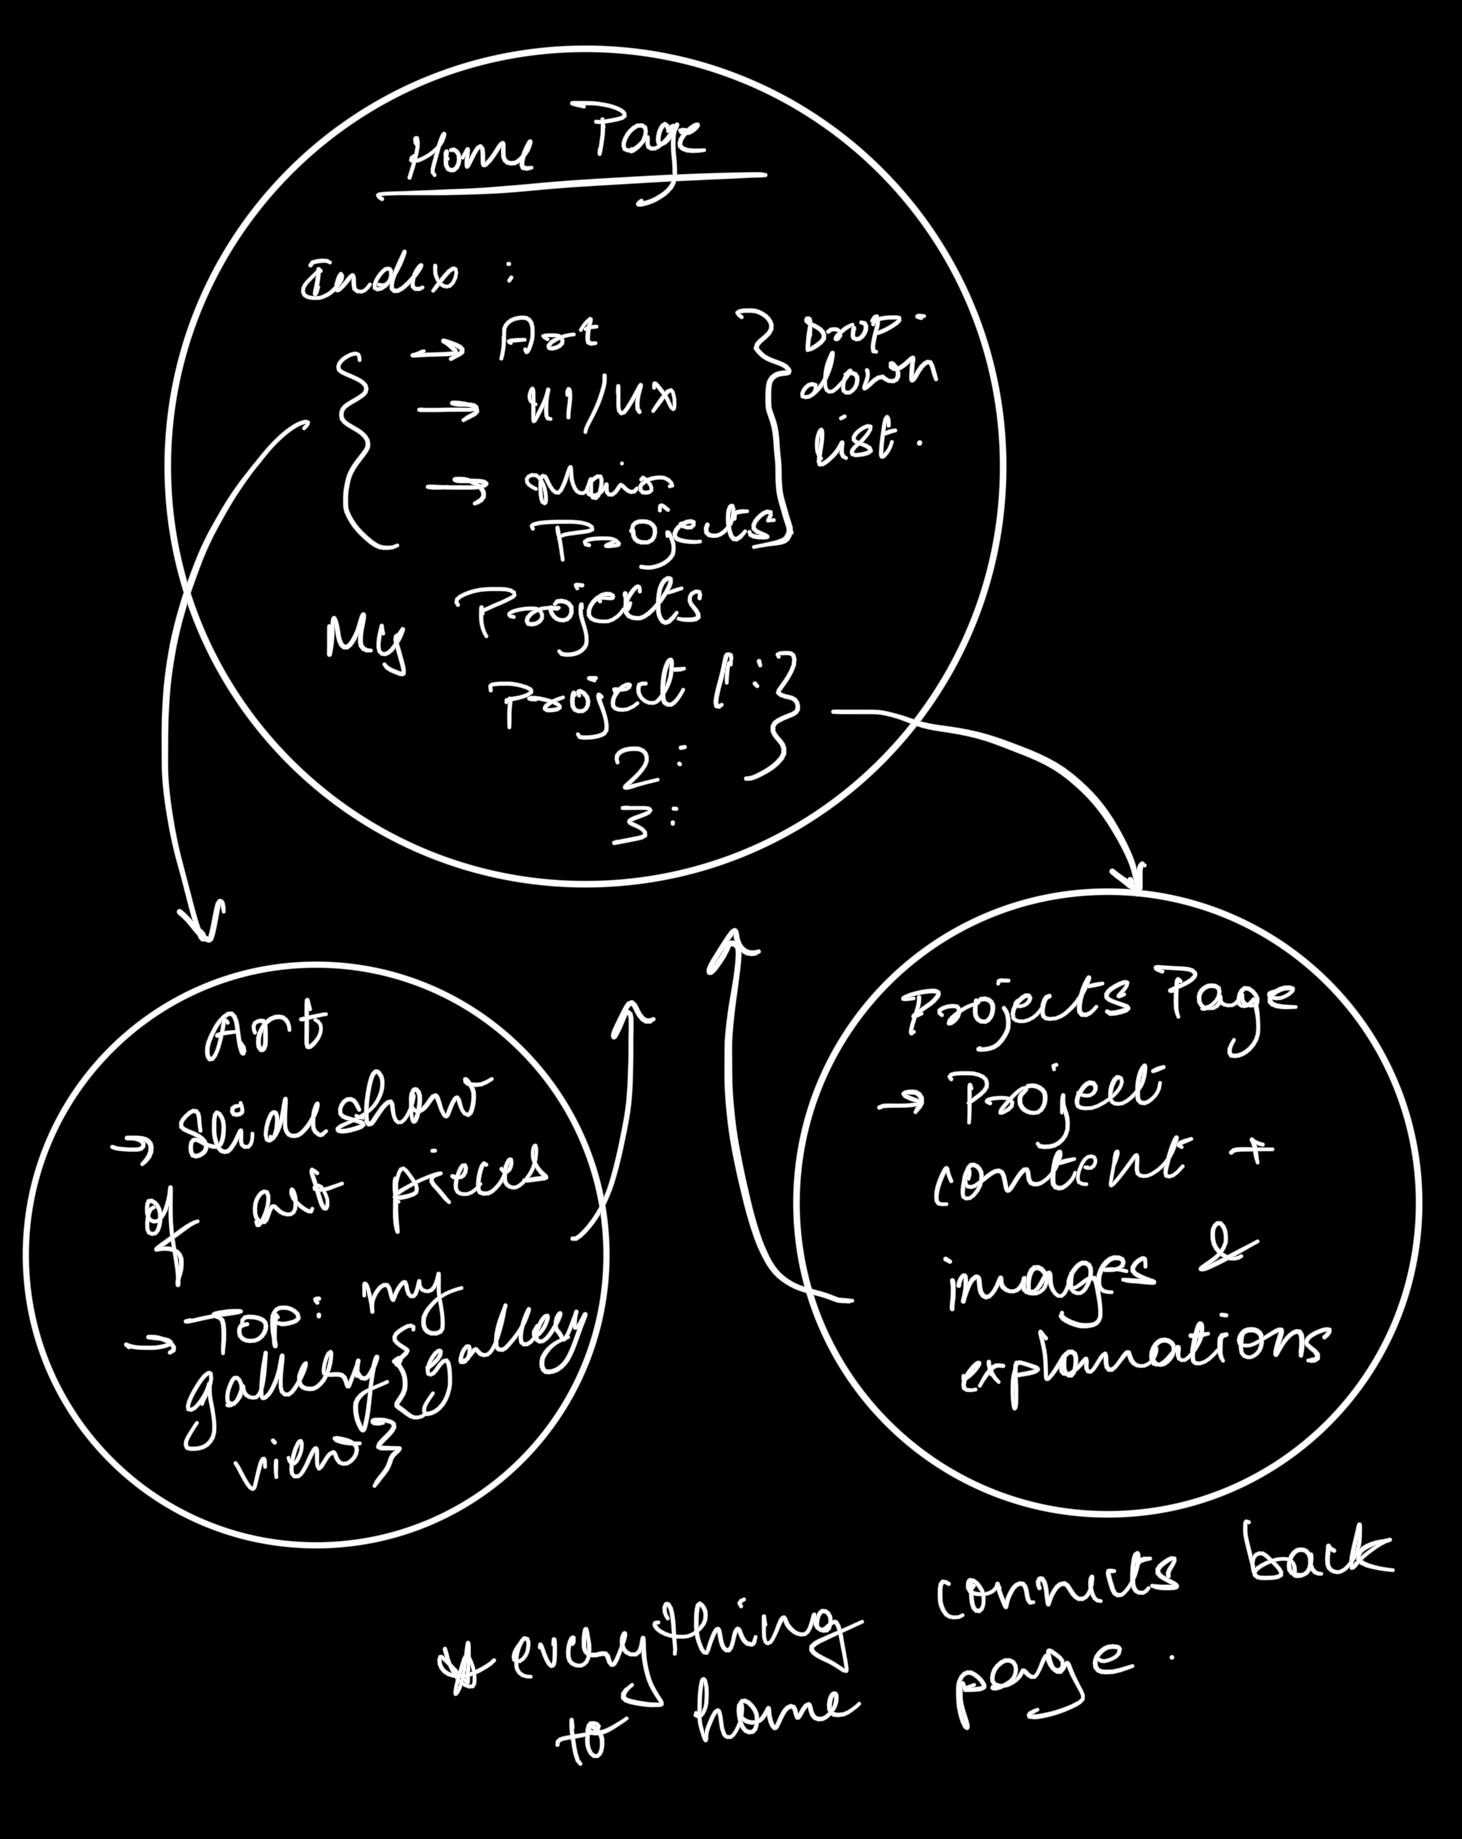 Home Page
Index :
→ Art
→ UI/UX
→ Main
Projects
Drop-
down
list.
My Projects
Project 1:
2:
3:
Art
→ slideshow
of art pieces
→ Top: my
gallery {gallery
view}
Projects Page
→ Project
content +
images &
explanations
* everything connects back
to home page.